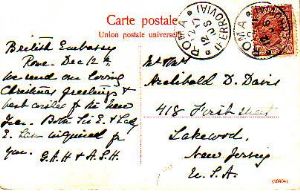 Carte postale
Union postale universelle
ROMA
FERROVIA
ROMA
British Embassy
Rome. Dec 12th
We send our loving
Christmas greetings &
best wishes for the new
Year. Both Sir E & Lady
E
inquired for
you. G.A.H & A.S.H.
Mr & Mrs
Archibald D. Davis
418 First Street
Lakewood.
New Jersey
U.S.A